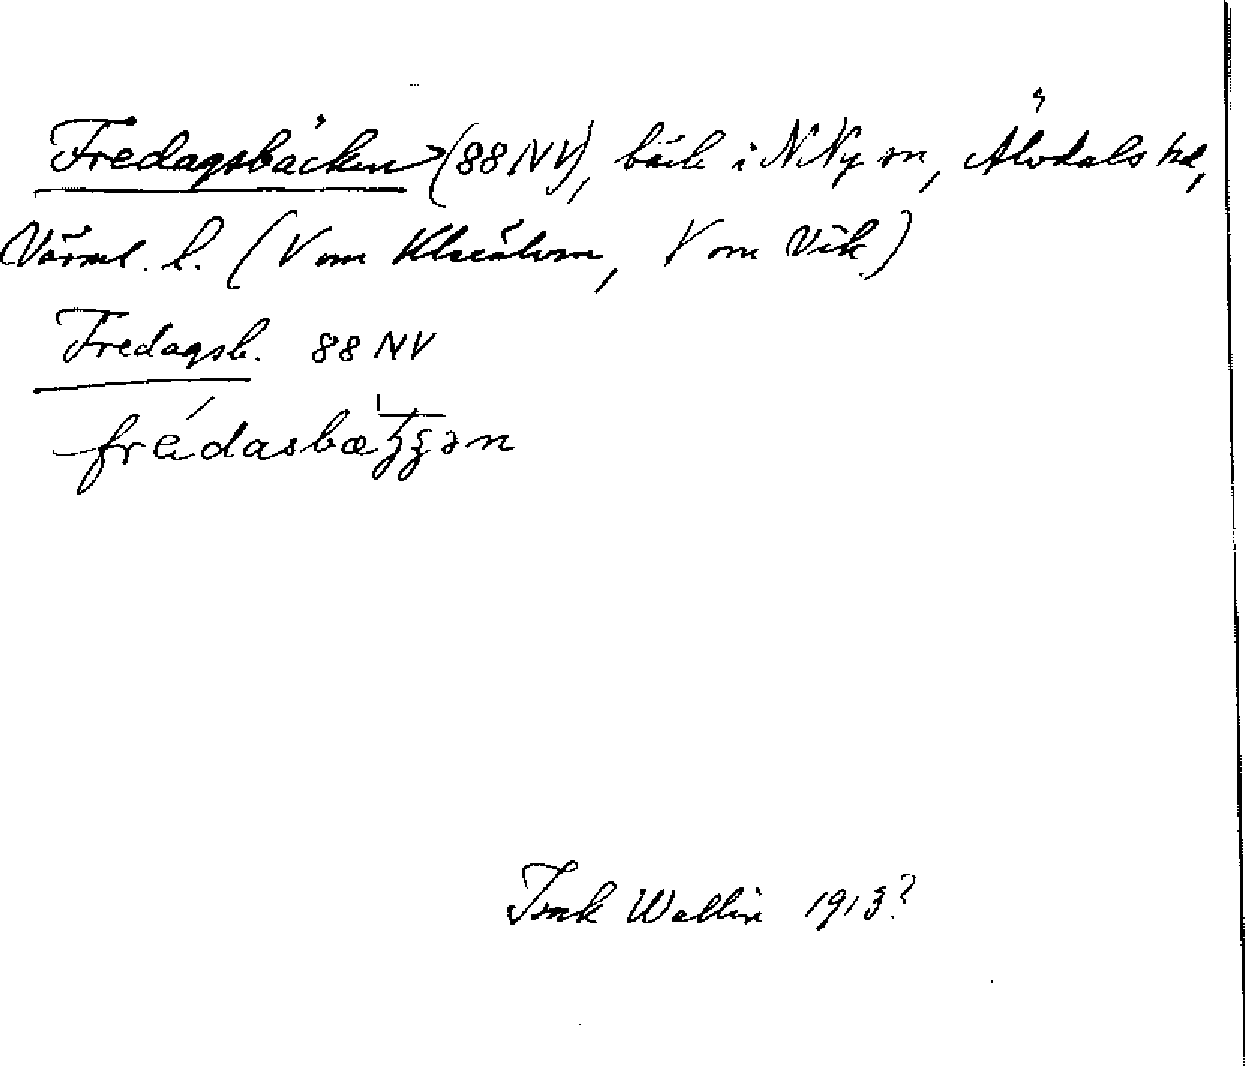 Fredagsbäcken (88NV), bäck i N Ny sn, Älvdals hd,
Värml. l. (V om Klarälven, V om Vik)
Fredagsb. 88 NV
Isak Wallin 1913?